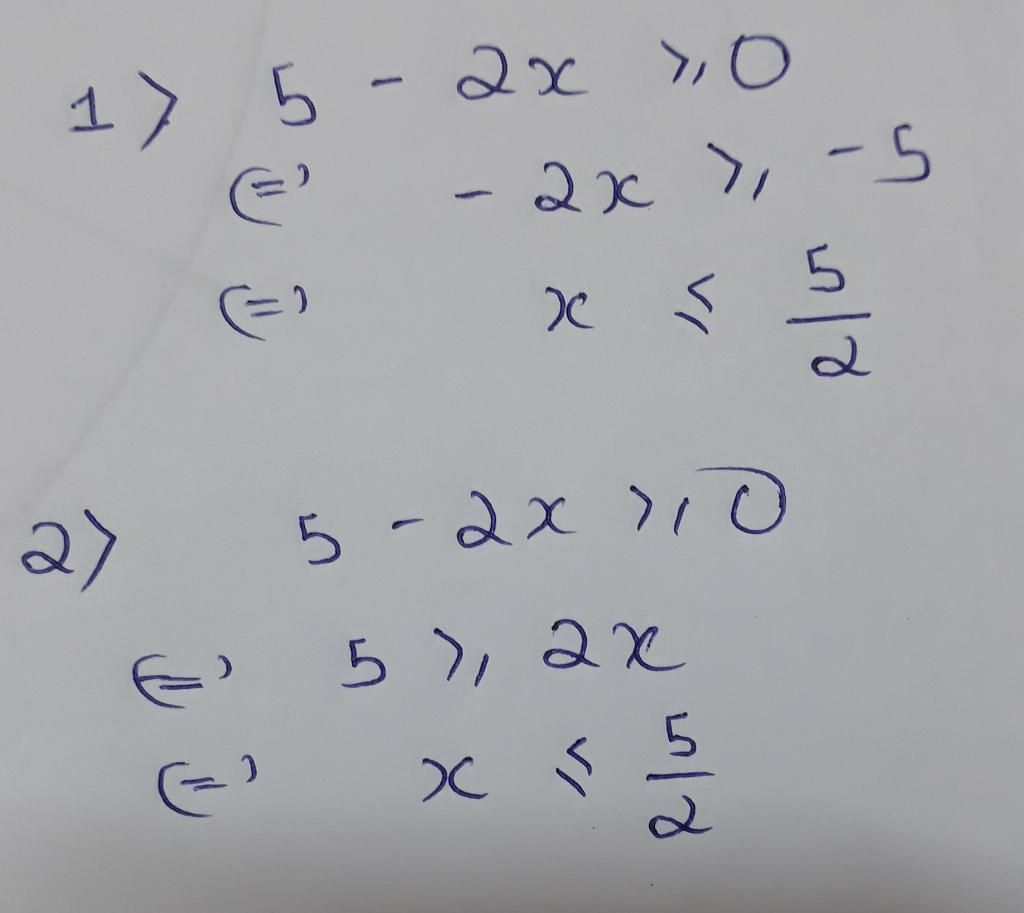 1> 5 - 2x ⩾ 0
<=> - 2x ⩾ - 5
<=> x ⩽ 5/2
2> 5 - 2x ⩾ 0
<=> 5 ⩾ 2x
<=> x ⩽ 5/2